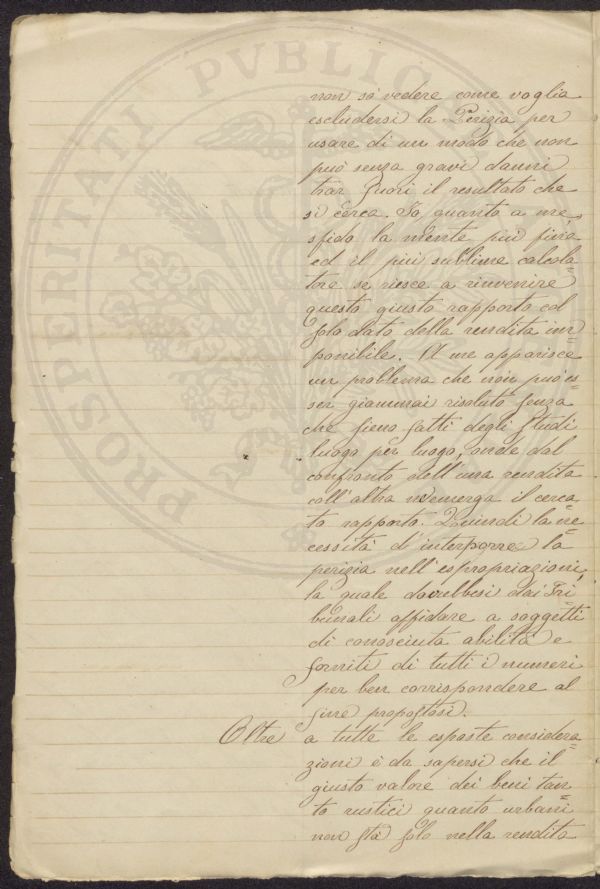 PROSPERITATI PVBLIC
non so vedere come voglia
escludersi la Perizia per
usare di un modo che non
può senza gravi danni
trar fuori il resultato che
si cerca. Io, quanto a me,
sfido la mente più fina
ed il più sublime calcola=
tore se riesce a rinvenire
questo giusto rapporto col
solo dato della rendita im=
ponibile. A me apparisce
un problema che non può es=
ser giammai risoluto senza
che sieno fatti degli studi
luogo per luogo, onde dal
confronto dell'una rendita
coll'altra n'emerga il cerca=
to rapporto. Quindi la ne=
cessità d'interporre la
perizia nell'espropriazioni,
la quale dovrebbesi dai Tri=
bunali affidare a soggetti
di conosciuta abilità e
forniti di tutti i numeri
per ben corrispondere al
fine propostosi.
Oltre a tutte le esposte considera=
zioni è da sapersi che il
giusto valore dei beni tan=
to rustici quanto urbani
non stà solo nella rendita